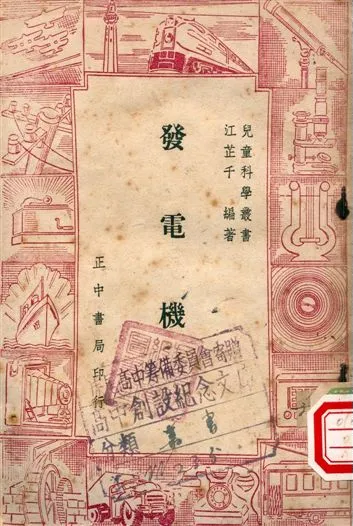 兒童科學叢書
江芷千編著
發電機
正中書局印行
高中籌備委員會寄贈
創設紀念文庫
分類